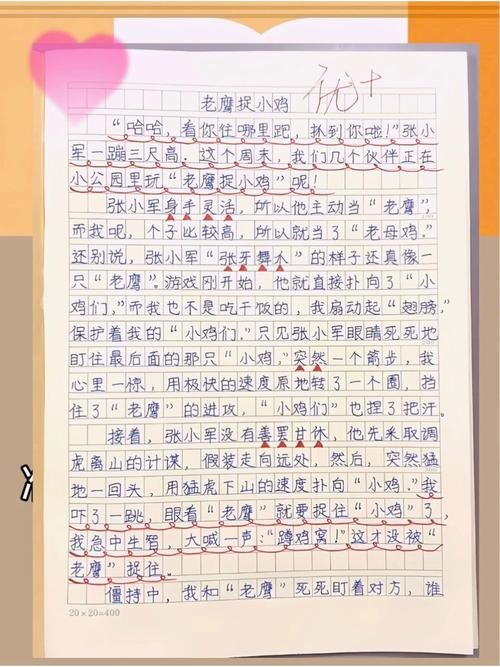 优+
老鹰捉小鸡
“哈哈，看你往哪里跑，抓到你啦！”张小
军一蹦三尺高。这个周末，我们几个伙伴正在
小公园里玩“老鹰捉小鸡”呢！
张小军身手灵活，所以他主动当“老鹰”，
而我呢，个子比较高，所以就当了“老母鸡”。
还别说，张小军“张牙舞爪”的样子还真像一
只“老鹰”。游戏刚开始，他就直接扑向了“小
鸡们”，而我也不是吃干饭的，我扇动起“翅膀”，
保护着我的“小鸡们”。只见张小军眼睛死死地
盯住最后面的那只“小鸡”，突然一个箭步，我
心里一惊，用极快的速度原地转了一个圈，挡
住了“老鹰”的进攻，“小鸡们”也捏了把汗。
接着，张小军没有善罢甘休，他先采取调
虎离山的计谋，假装走向远处，然后，突然猛
地一回头，用猛虎下山的速度扑向“小鸡”。我
吓了一跳，眼看“老鹰”就要捉住“小鸡”了，
我急中生智，大喊一声：“蹲鸡窝！”这才没被“
老鹰”捉住。
僵持中，我和“老鹰”死死盯着对方，谁
20×20=400